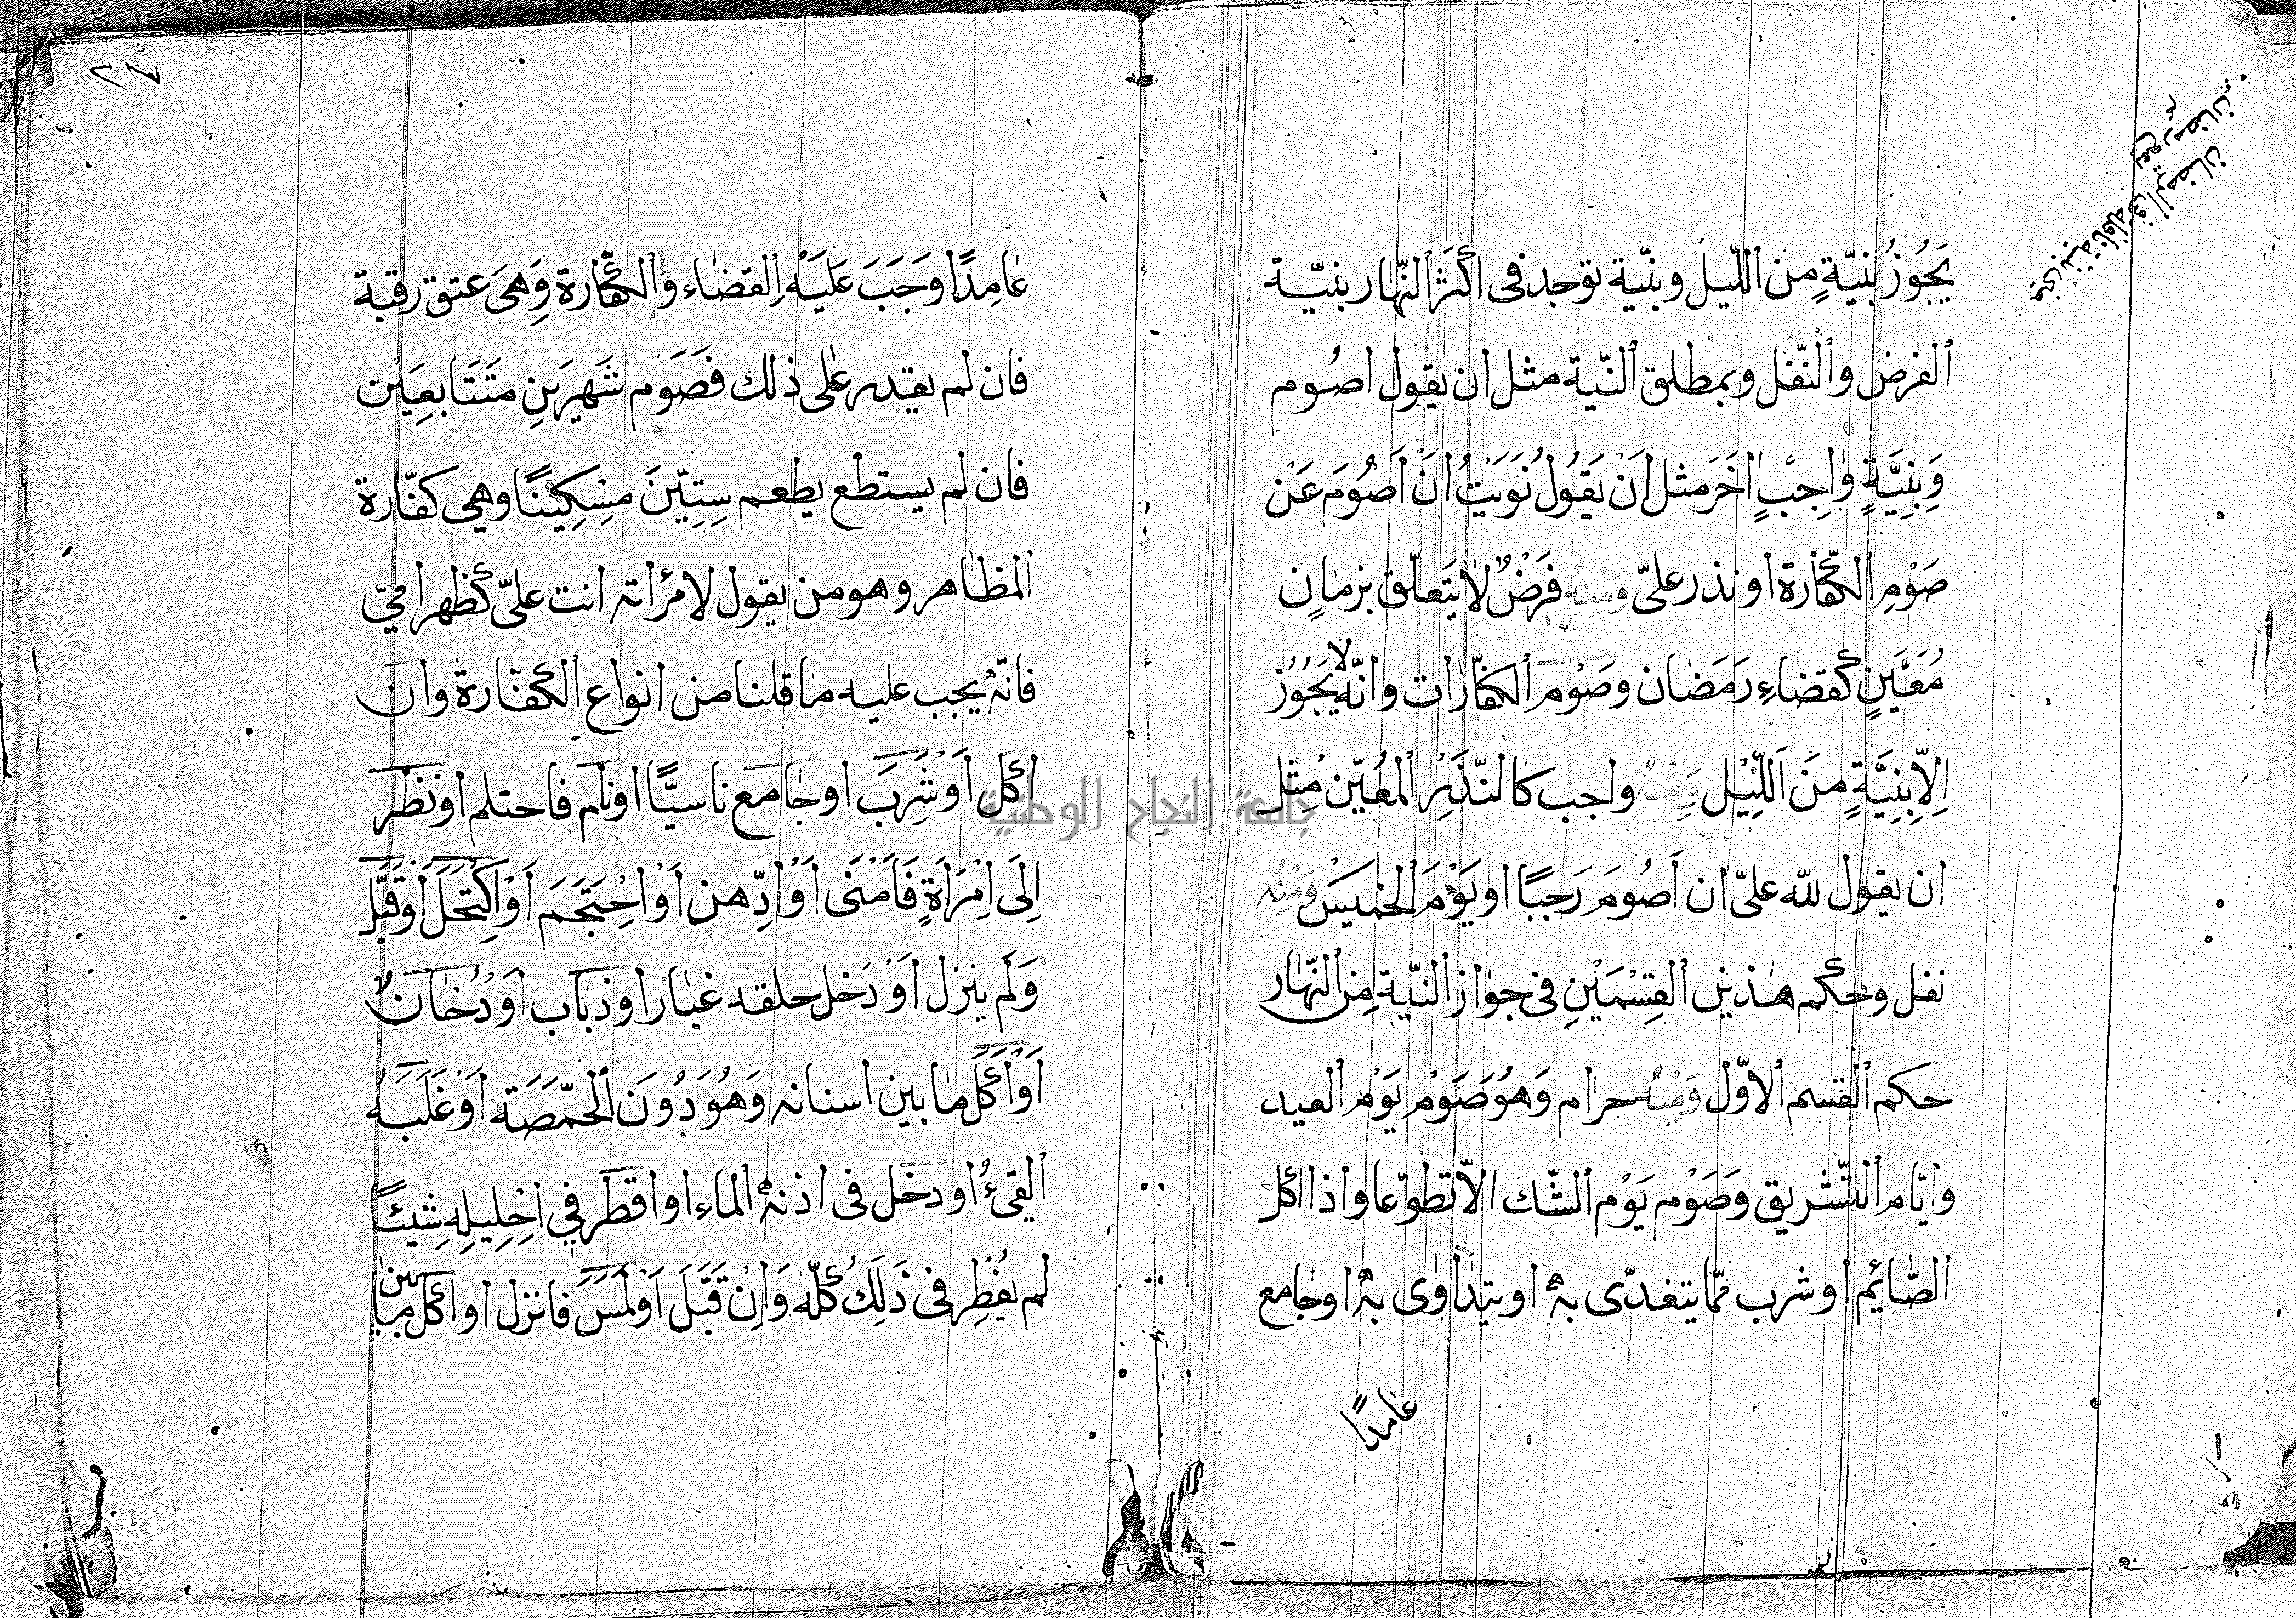 يَجُوزُ بنيّةٍ من اللّيل وبنيّة توجد فى اكثر النّهار بنيّة
الفرض والنّفل وبمطلق النّية مثل ان يقول اصُوم
وَبِنِيَّةٍ وٰاجِبٍ اٰخَرَ مثل اَنْ يَقُولُ نَوَيْتُ اَنْ اَصُومَ عَنْ
صَوْمِ الكفّارة او نذر علىّ ومنه فَرَضٌ لا يَتَعلّق بزمانٍ
مُعَيَّنٍ كقضاءِ رَمَضٰان وصَوْم الكفّارات وانّه لا يَجُوزُ
اِلّا بِنِيَّةٍ مِنَ اللَّيْل وَمِنْهُ واجب كالنّذر المُعيّن مثل
ان يقول للّه علىّ ان اَصُومَ رَجبًا او يَوْمَ الخميسَ وَمِنْه
نفل وحكم هٰذين القِسْمَيْنِ فى جواز النّية مِن النّهار
حكم القسم الاوّل وَمِنْهُ حرام وَهُوَ صَوْم يَوْم العيد
وايّام التّشريق وصَوْم يَوْم الشّك الّا تطوّعا واذا اكل
الصّائم او شرب ممّا يتغدّى به او يتداوٰى به او جامع
عامدًا
٢٧
عٰامِدًا وَجَبَ عَلَيْه القضاء والكفّارة وَهىَ عتق رقبة
فان لم يقدر على ذلك فَصَوْم شَهرَيْنِ متَتَابعَيْن
فان لم يستطع يطعم سِتِيّنَ مِسكِينًا وهى كفّارة
المظاهر وهو من يقول لامرأته انت علىّ كظهر امّى
فانّه يجب عليه ما قلنا من انواع الكفّارة وان
اكل اَوْ شَرِبَ او جٰامع ناسيًّا او نام فاحتلم او نظَر
اِلَى اِمْرَاَةٍ فَاَمْنَى اَوْ ادّهن اَوْ احْتَجَمَ اَوْ اكتحَلَ اَوْ قبَّل
وَلَم ينزل اَوْ دَخل حلقه غبار او ذباب اَوْ دُخَانٌ
اَوْ اَكَلَ ما بين اسنانه وَهُوَ دُونَ الحمّصَة اَوْ غَلَبَهُ
القىءُ او دخَل فى اذنه الماء او اقطَر فِى اِحْلِيلِهِ شيئًا
لم يفْطِر فى ذَلِكَ كلّه وَاِنْ قَبَّلَ اَوْ لَمَسَ فانزل او اكل ما بين
جامعة النجاح الوطنية